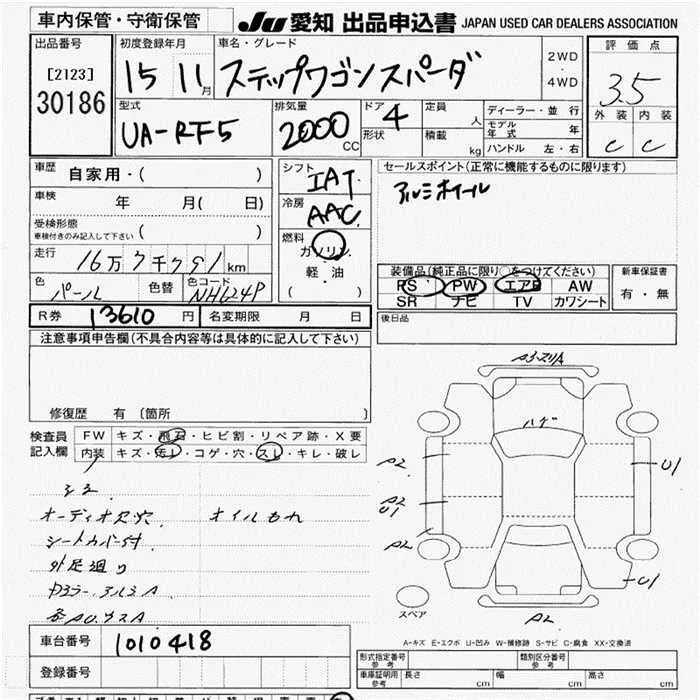 車内保管・守衛保管
JU 愛知 出品申込書 JAPAN USED CAR DEALERS ASSOCIATION
出品番号
[2123]
30186
初度登録年月
15 11月
車名・グレード
ステップワゴンスパーダ
2WD
・
4WD
評価点
3.5
外装 内装
C C
型式
UA-RF5
排気量
2000 CC
ドア 4
形状
定員 人
積載 kg
ディーラー・並行
モデル年式 年
ハンドル 左・右
車歴 自家用・( )
車検 年 月( 日)
受検形態
車検付きのみ記入して下さい ( )
走行 16万7千791 km
色 パール 色替 色コード NH624P
シフト IAT
冷房 AAC
燃料
ガソリン
軽・油
( )
セールスポイント(正常に機能するものに限ります)
アルミホイール
装備品(純正品に限り○をつけてください)
PS PW エアB AW
SR ナビ TV カワシート
新車保証書
有・無
R券 13610 円 名変期限 月 日
後日品
注意事項申告欄(不具合内容等は具体的に記入して下さい)
修復歴 有 (箇所 )
検査員記入欄
FW キズ・飛石・ヒビ割・リペア跡・X要
内装 キズ・汚レ・コゲ・穴・スレ・キレ・破レ
オーディオ欠穴 オイルもれ
シートカバー付
外足廻り
ハゲ
A2
A2
U1
A2
U1
U1
A2
スペア
A-キズ E-エクボ U-凹み W-補修跡 S-サビ C-腐食 XX-交換済
車台番号 1010418
登録番号
形式指定番号 参考
類別区分番号 参考
車庫証明用 参考 長さ cm 幅 cm 高さ cm